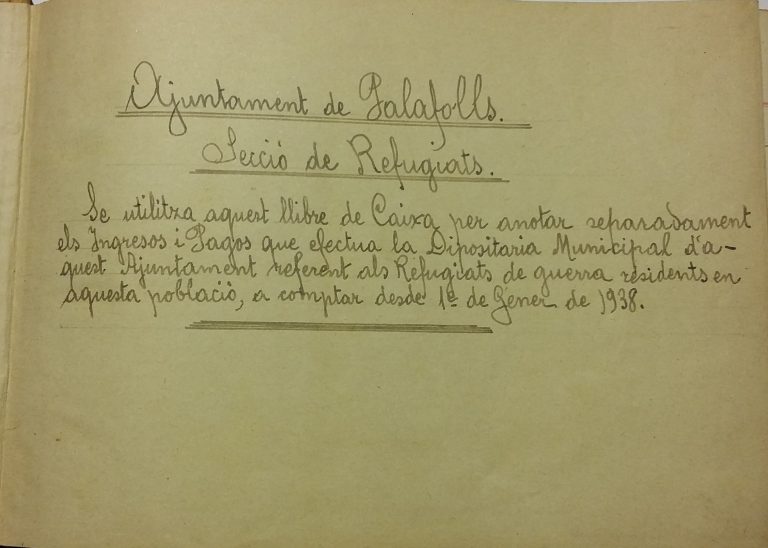 Ajuntament de Palafolls.
Secció de Refugiats.
Se utilitza aquest llibre de Caixa per anotar separadament
els Ingresos i Pagos que efectua la Dipositaria Municipal d'a-
quest Ajuntament referent als Refugiats de guerra residents en
aquesta població, a comptar desde 1er de Gener de 1938.